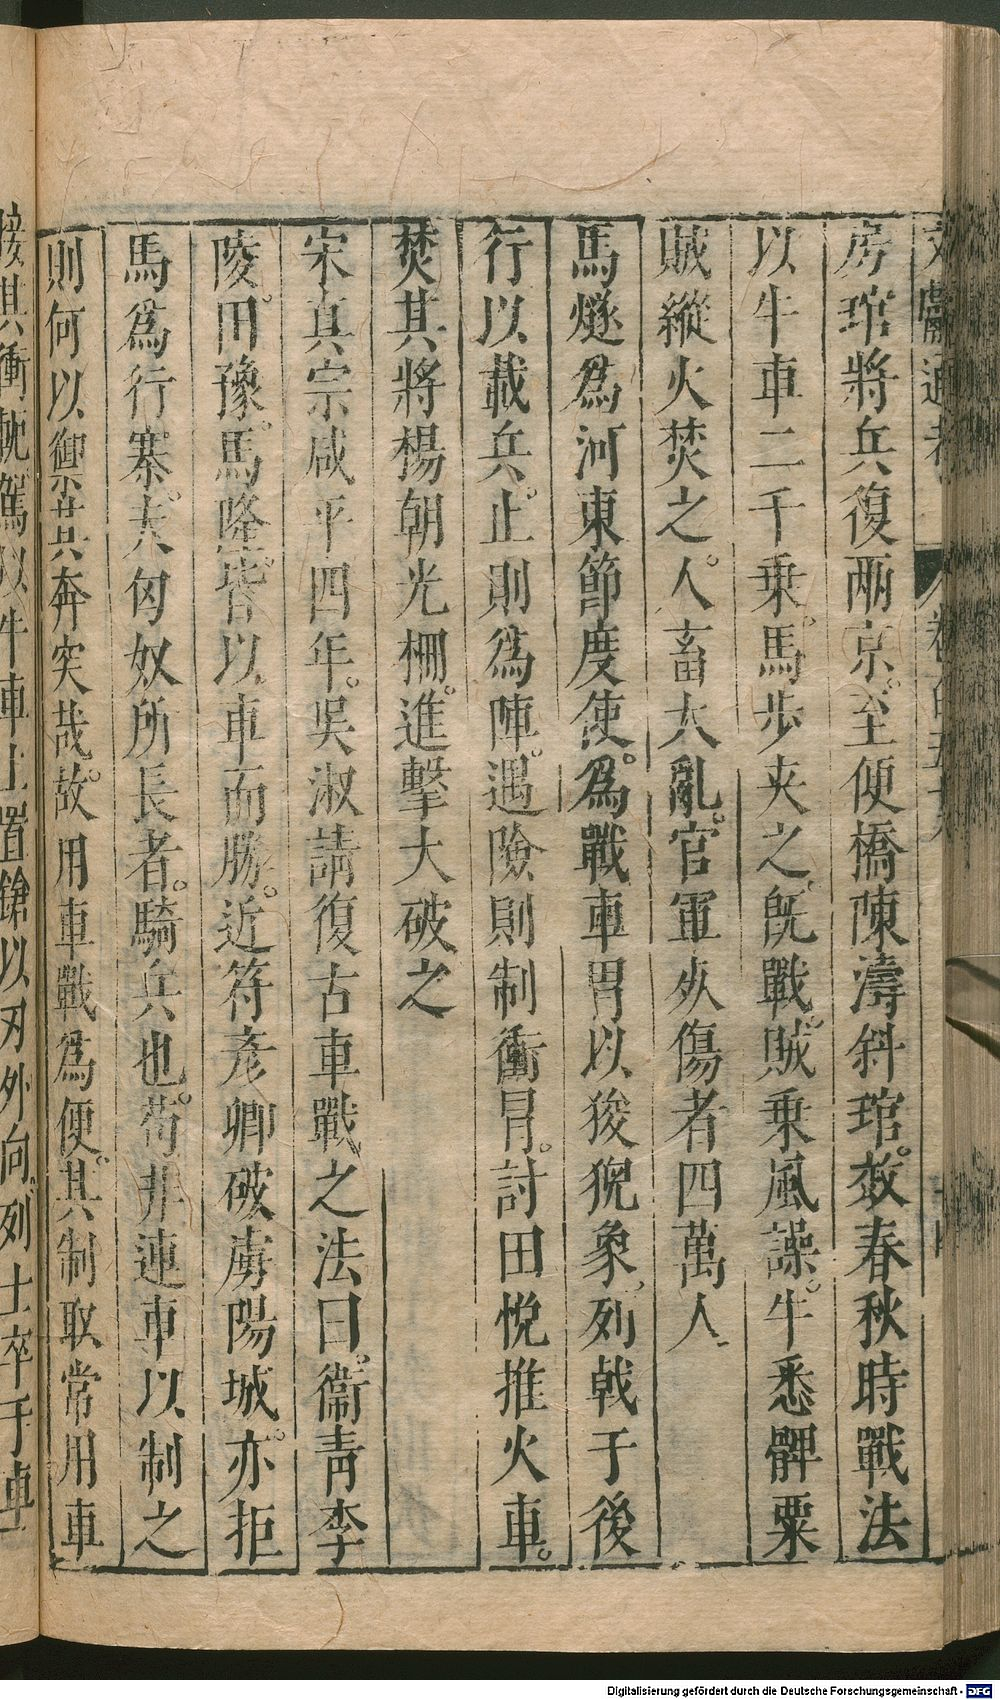 文獻通考 卷百五十八
房琯將兵復兩京。至便橋陳濤斜琯。效春秋時戰法
以牛車二千乗。馬步夾之。旣戰。賊乗風譟。牛悉髀粟
賊縱火焚之。人畜大亂。官軍死傷者四萬人
馬燧爲河東節度使。爲戰車冒以狻猊象。列戟于後
行以載兵。止則爲陣。遇險則制衝冒。討田悅推火車。
焚其將楊朝光柵。進擊大破之
宋真宗咸平四年。吳淑請復古車戰之法曰。衞青李
陵。田豫。馬隆。皆以車而勝。近符彥卿破虜陽城。亦拒
馬爲行寨。夫匈奴所長者。騎兵也。苟非連車以制之
則何以禦其奔突哉。故用車戰爲便。其制取常用車
接其衝軛駕以牛車上置鎗以刃外向。列士卒于車
Digitalisierung gefördert durch die Deutsche Forschungsgemeinschaft - DFG